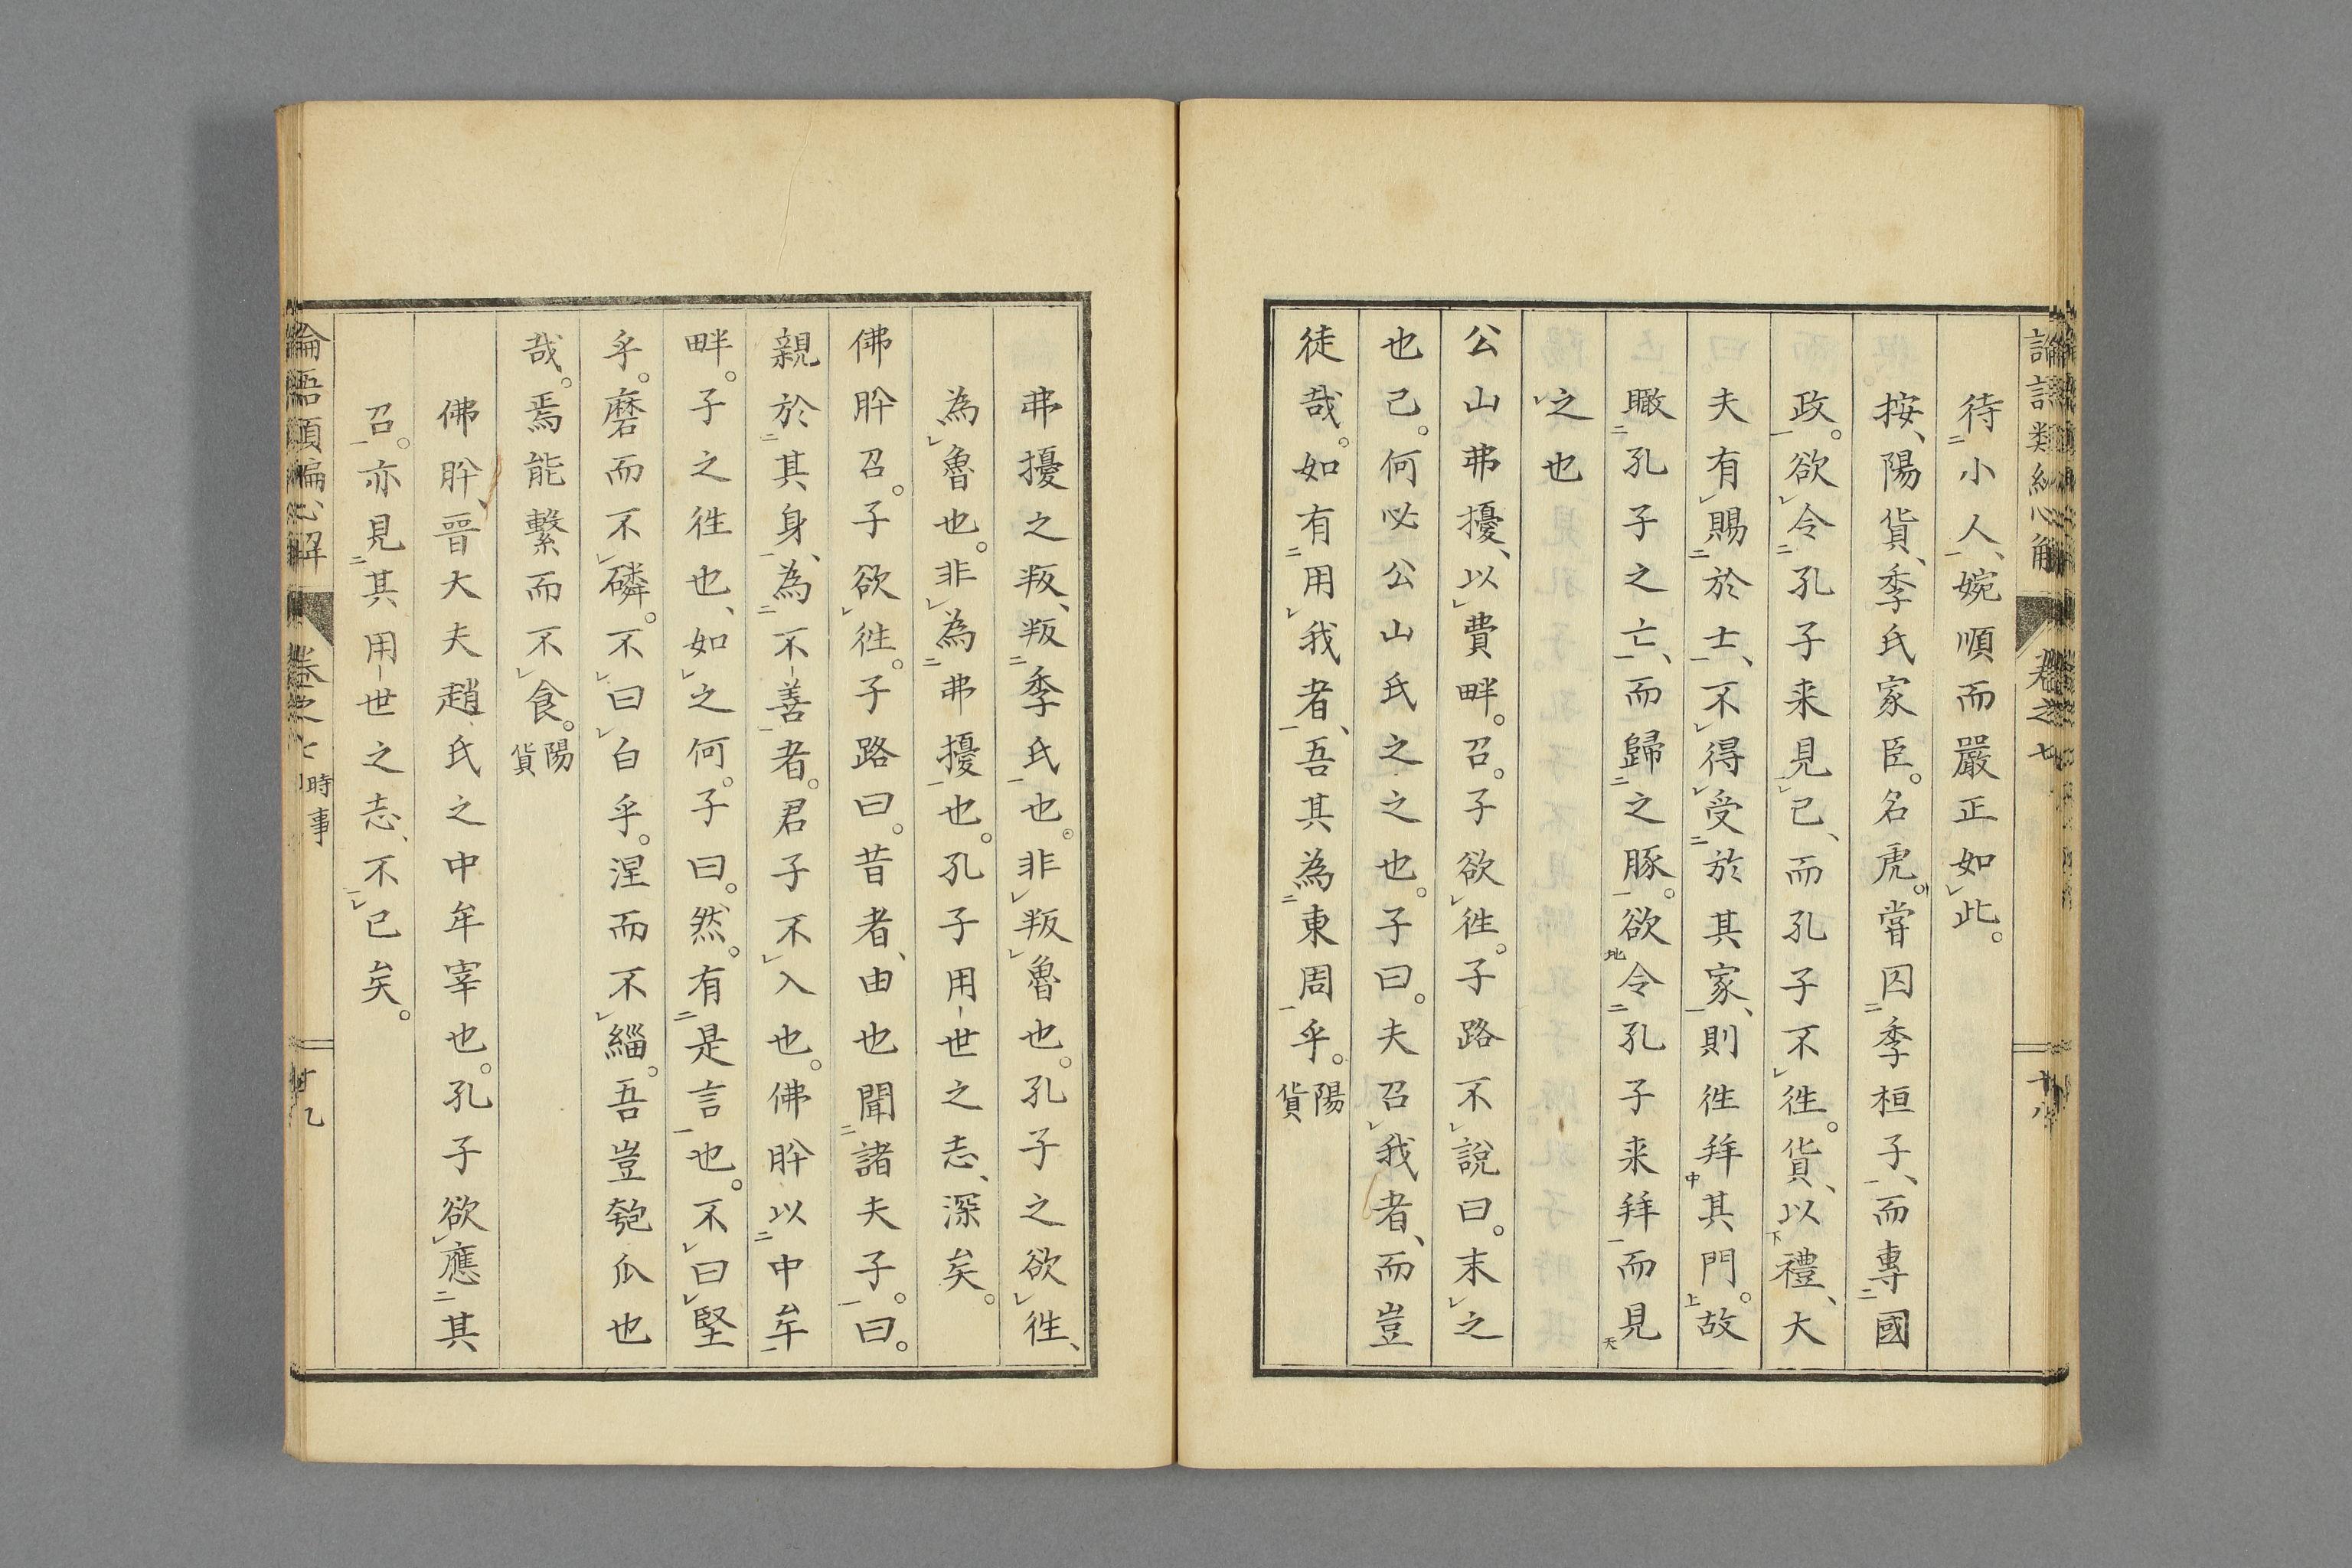 待二小人一、婉順而嚴正如㆑此。
按、陽貨、季氏家臣。名虎。嘗囚二季桓子一、而專二國
政一。欲㆑令二孔子来見一㆑已、而孔子不㆑徃。貨、以下禮、大
夫有㆑賜二於士一、不㆑得㆑受二於其家一、則徃拜中其門上。故
瞰二孔子之亡一、而歸二之豚一。欲地令二孔子来拜一而見天
之也
公山弗擾、以㆑費畔。召。子欲㆑徃。子路不㆑説曰。末㆑之
也己。何必公山氏之之也。子曰。夫召㆑我者、而豈
徒哉。如有二用㆑我者一、吾其為二東周一乎。陽貨
弗擾之叛、叛二季氏一也。非㆑叛㆑魯也。孔子之欲㆑徃、
為㆑魯也。非㆑為二弗擾一也。孔子用世之志、深矣。
佛肸召。子欲㆑徃。子路曰。昔者、由也聞二諸夫子一。曰。
親於二其身一、為二不善一者。君子不㆑入也。佛肸以二中牟一
畔。子之徃也、如㆑之何。子曰。然。有二是言一也。不㆑曰㆑堅
乎。磨而不㆑磷。不㆑曰㆑白乎。涅而不㆑緇。吾豈匏瓜也
哉。焉能繫而不㆑食。陽貨
佛肸、晉大夫趙氏之中牟宰也。孔子欲㆑應二其
召一。亦見二其用世之志、不一㆑已矣。
卷之七 時事